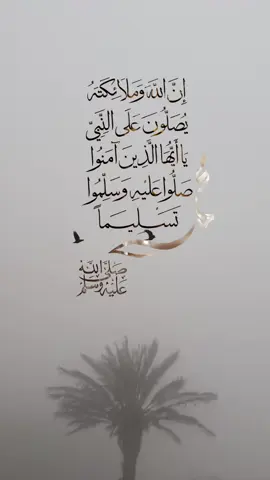 إِنَّ اللَّهَ وَمَلَائِكَتَهُ
يُصَلُّونَ عَلَى النَّبِيِّ
يَا أَيُّهَا الَّذِينَ آمَنُوا
صَلُّوا عَلَيْهِ وَسَلِّمُوا
تَسْلِيمًا
صَلَّى اللَّهُ
عَلَيْهِ وَسَلَّمَ